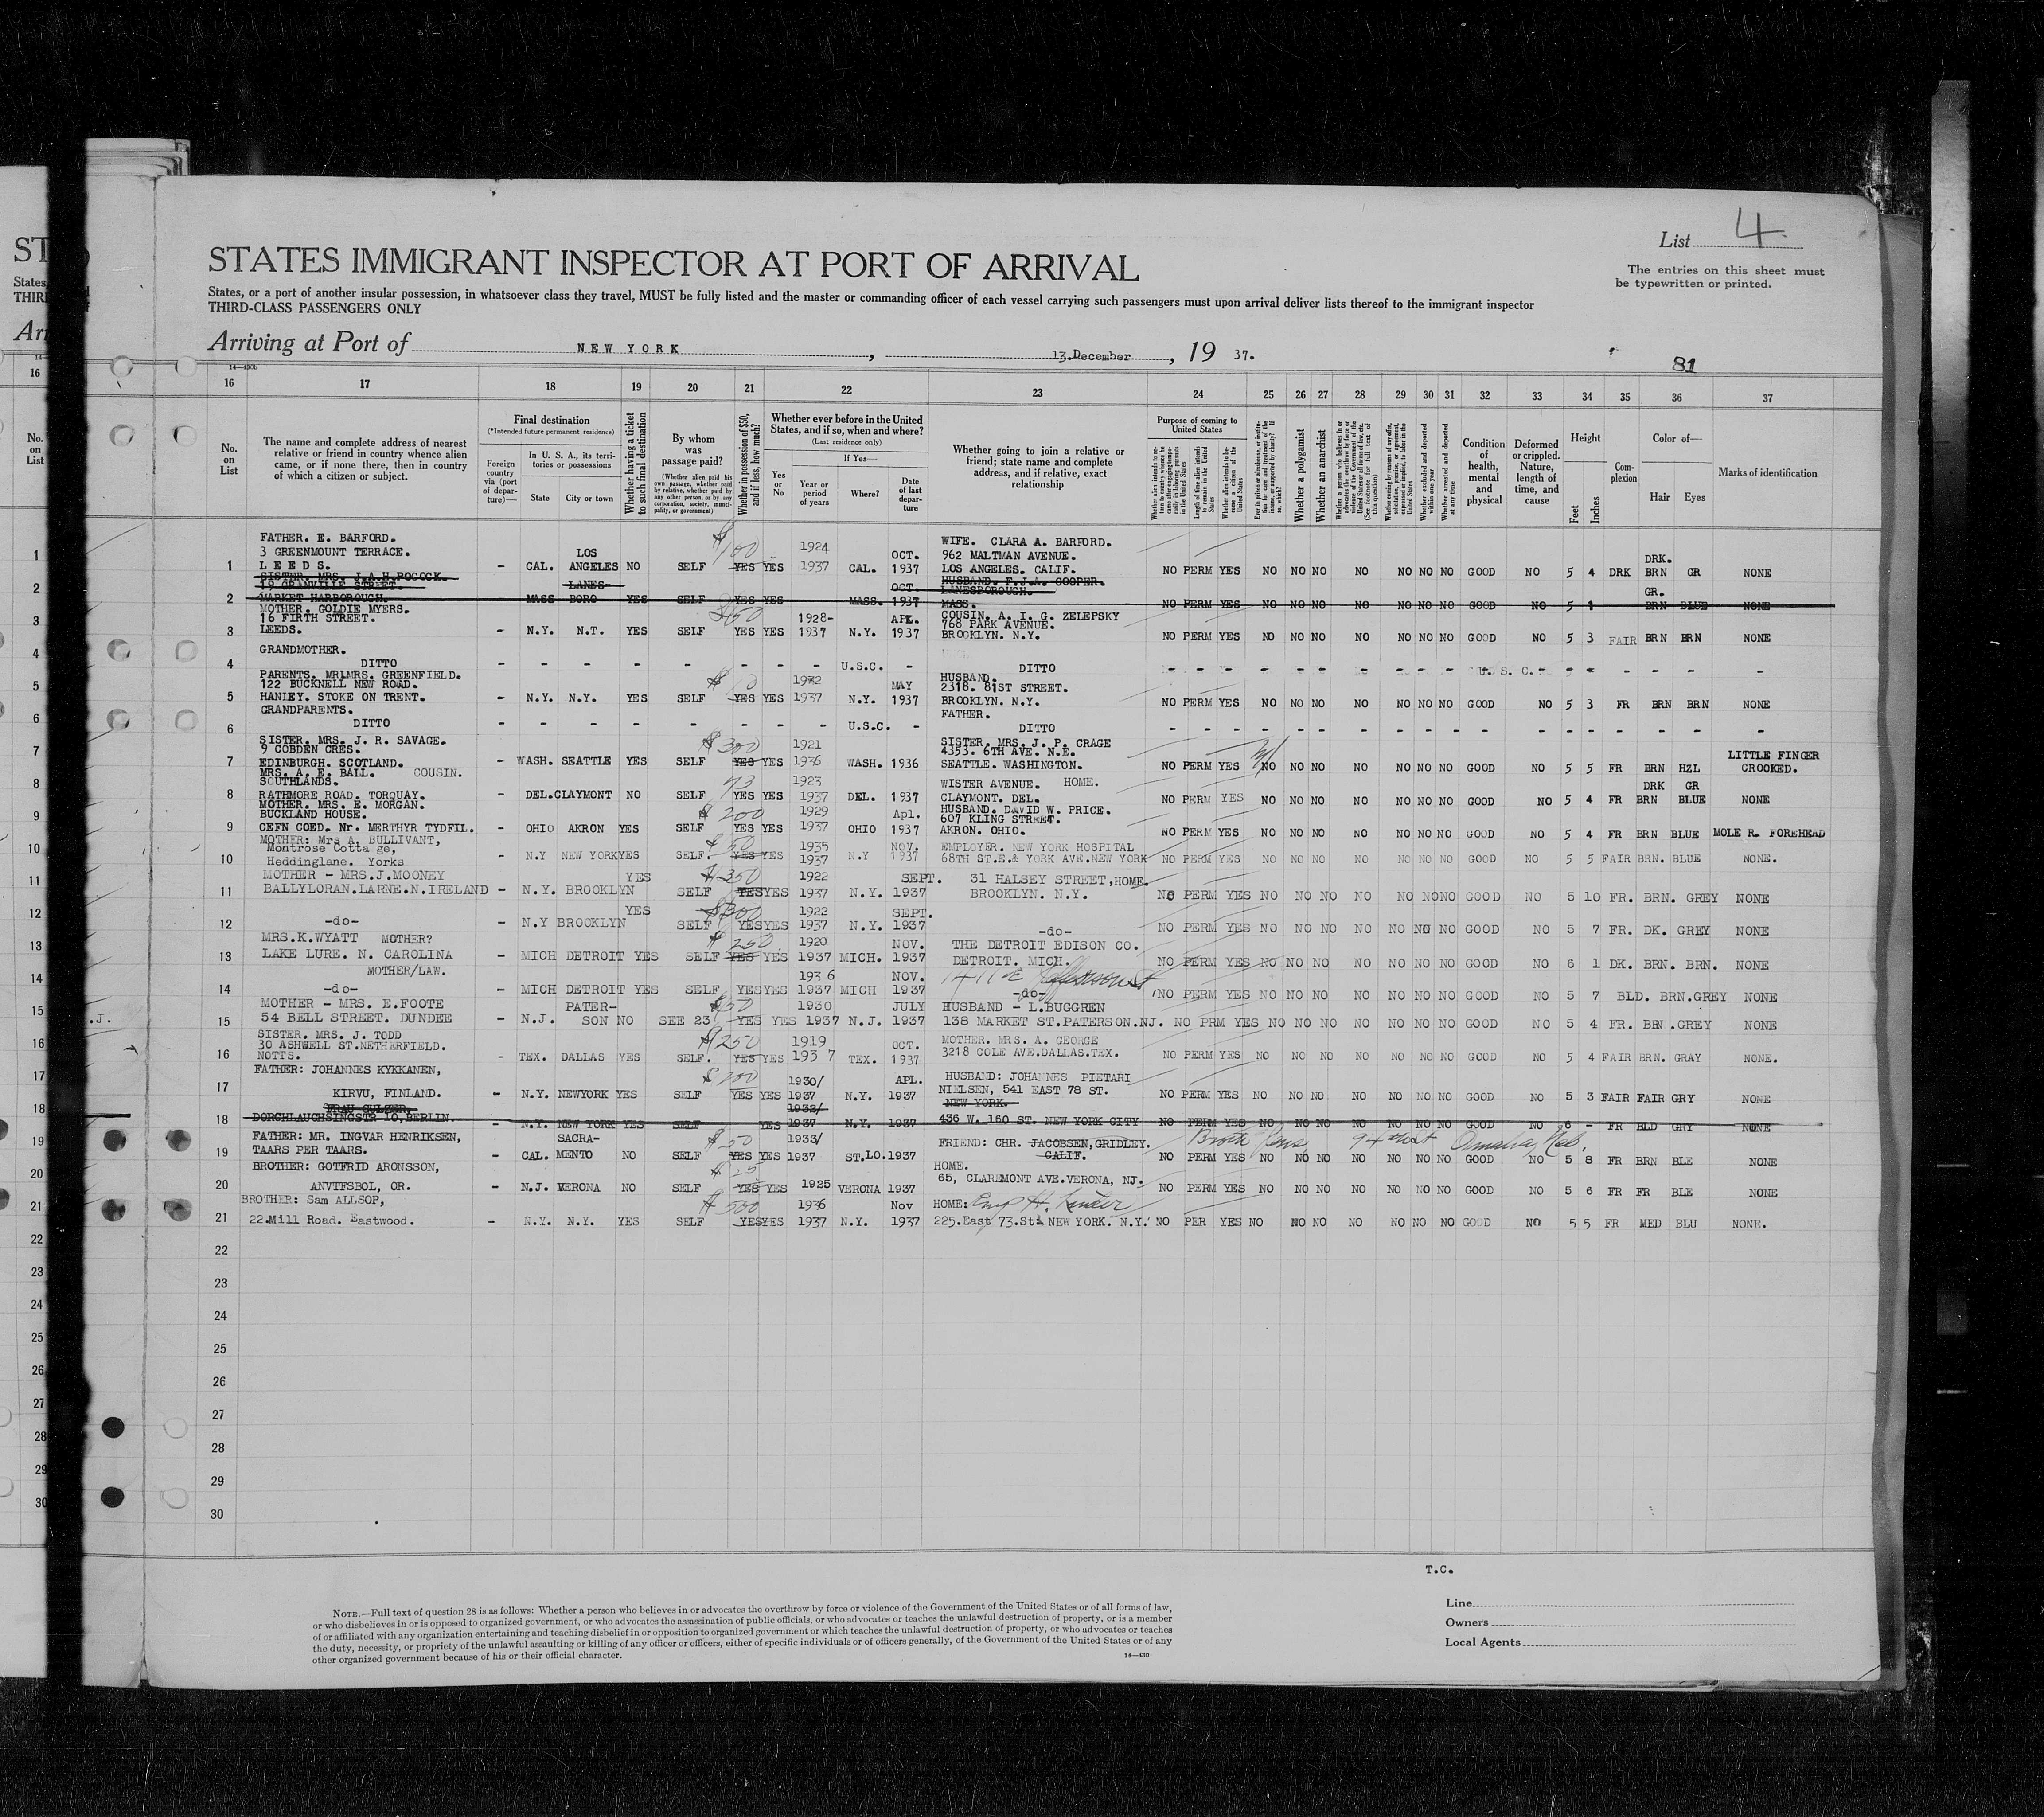 List 4
STATES IMMIGRANT INSPECTOR AT PORT OF ARRIVAL
The entries on this sheet must
be typewritten or printed.
States, or a port of another insular possession, in whatsoever class they travel, MUST be fully listed and the master or commanding officer of each vessel carrying such passengers must upon arrival deliver lists thereof to the immigrant inspector
THIRD-CLASS PASSENGERS ONLY
Arriving at Port of NEW YORK, 13 December, 19 37.
81
14—430b
16 17 18 19 20 21 22 23 24 25 26 27 28 29 30 31 32 33 34 35 36 37
No. on List
The name and complete address of nearest relative or friend in country whence alien came, or if none there, then in country of which a citizen or subject.
Final destination
(*Intended future permanent residence)
Foreign country via (port of departure)—
In U. S. A., its territories or possessions
State City or town
Whether having a ticket to such final destination
By whom was passage paid?
(Whether alien paid his own passage, whether paid by relative, whether paid by any other person, or by any corporation, society, municipality, or government)
Whether in possession of $50, and if less, how much?
Whether ever before in the United States, and if so, when and where?
(Last residence only)
Yes or No
If Yes—
Year or period of years
Where?
Date of last departure
Whether going to join a relative or friend; state name and complete address, and if relative, exact relationship
Purpose of coming to United States
Whether a polygamist
Whether an anarchist
Condition of health, mental and physical
Deformed or crippled. Nature, length of time, and cause
Height
Feet Inches
Complexion
Color of—
Hair Eyes
Marks of identification
FATHER. E. BARFORD. WIFE. CLARA A. BARFORD.
3 GREENMOUNT TERRACE. LOS $100 1924 OCT. 962 MALTMAN AVENUE. DRK.
1 LEEDS. - CAL. ANGELES NO SELF YES YES 1937 CAL. 1937 LOS ANGELES. CALIF. NO PERM YES NO NO NO NO NO NO NO GOOD NO 5 4 DRK BRN GR NONE
SISTER. MRS. J.A.H.POCOCK. HUSBAND. F.J.A. COOPER.
19 GRANVILLE STREET. LANES- OCT. LANESBOROUGH. GR.
2 MARKET HARBOROUGH. MASS BORO YES SELF YES YES MASS. 1937 MASS. NO PERM YES NO NO NO NO NO NO NO GOOD NO 5 1 BRN BLUE NONE
MOTHER. GOLDIE MYERS. COUSIN. A. I. G. ZELEPSKY
16 FIRTH STREET. 1928- APL. 768 PARK AVENUE.
3 LEEDS. - N.Y. N.T. YES SELF YES YES 1937 N.Y. 1937 BROOKLYN. N.Y. NO PERM YES NO NO NO NO NO NO NO GOOD NO 5 3 FAIR BRN BRN NONE
GRANDMOTHER.
4 DITTO - - - - - - - - U.S.C. - DITTO - - - - - - U. S. C. - - - - - -
PARENTS. MRLMRS. GREENFIELD. HUSBAND.
122 BUCKNELL NEW ROAD. MAY 2318. 81ST STREET.
5 HANLEY. STOKE ON TRENT. - N.Y. N.Y. YES SELF YES YES 1937 N.Y. 1937 BROOKLYN. N.Y. NO PERM YES NO NO NO NO NO NO NO GOOD NO 5 3 FR BRN BRN NONE
GRANDPARENTS. FATHER.
6 DITTO - - - - - - - - U.S.C. - DITTO - - - - - - - - - - - - - - - -
SISTER. MRS. J. R. SAVAGE. $300 1921 SISTER. MRS. J. P. CRAGE
9 COBDEN CRES. 4353. 6TH AVE. N.E. LITTLE FINGER
7 EDINBURGH. SCOTLAND. - WASH. SEATTLE YES SELF YES YES 1936 WASH. 1936 SEATTLE. WASHINGTON. NO PERM YES NO NO NO NO NO NO NO GOOD NO 5 5 FR BRN HZL CROOKED.
MRS. A. E. BALL. COUSIN.
SOUTHLANDS. 73 1923 WISTER AVENUE. HOME. DRK GR
8 RATHMORE ROAD. TORQUAY. - DEL. CLAYMONT NO SELF YES YES 1937 DEL. 1937 CLAYMONT. DEL. NO PERM YES NO NO NO NO NO NO NO GOOD NO 5 4 FR BRN BLUE NONE
MOTHER. MRS. E. MORGAN. HUSBAND. DAVID W. PRICE.
BUCKLAND HOUSE. $200 1929 Apl. 607 KLING STREET.
9 CEFN COED. Nr. MERTHYR TYDFIL. - OHIO AKRON YES SELF YES YES 1937 OHIO 1937 AKRON. OHIO. NO PERM YES NO NO NO NO NO NO NO GOOD NO 5 4 FR BRN BLUE MOLE R. FOREHEAD
MOTHER: Mrs A. BULLIVANT,
Montrose Cotta ge, $50 1935 NOV. EMPLOYER. NEW YORK HOSPITAL
10 Heddinglane. Yorks - N.Y NEW YORK YES SELF. YES YES 1937 N.Y 1937 68TH ST.E.& YORK AVE.NEW YORK NO PERM YES NO NO NO NO NO NO NO GOOD NO 5 5 FAIR BRN. BLUE NONE.
MOTHER - MRS.J.MOONEY YES $350 1922 SEPT. 31 HALSEY STREET, HOME.
11 BALLYLORAN.LARNE.N.IRELAND - N.Y. BROOKLYN SELF YES YES 1937 N.Y. 1937 BROOKLYN. N.Y. NO PERM YES NO NO NO NO NO NO NO GOOD NO 5 10 FR. BRN. GREY NONE
YES 1922 SEPT.
12 -do- - N.Y BROOKLYN SELF YES YES 1937 N.Y. 1937 -do- NO PERM YES NO NO NO NO NO NO NO GOOD NO 5 7 FR. DK. GREY NONE
MRS.K.WYATT MOTHER? $250 1920 NOV. THE DETROIT EDISON CO.
13 LAKE LURE. N. CAROLINA - MICH DETROIT YES SELF YES YES 1937 MICH. 1937 DETROIT. MICH. NO PERM YES NO NO NO NO NO NO NO GOOD NO 6 1 DK. BRN. BRN. NONE
MOTHER/LAW. 193 6 NOV.
14 -do- - MICH DETROIT YES SELF YES YES 1937 MICH 1937 -do- NO PERM YES NO NO NO NO NO NO NO GOOD NO 5 7 BLD. BRN. GREY NONE
MOTHER - MRS. E.FOOTE PATER- $50 1930 JULY HUSBAND - L.BUGGREN
15 54 BELL STREET. DUNDEE - N.J. SON NO SEE 23 YES YES 1937 N.J. 1937 138 MARKET ST.PATERSON.NJ. NO PRM YES NO NO NO NO NO NO NO GOOD NO 5 4 FR. BRN .GREY NONE
SISTER. MRS. J. TODD
30 ASHWELL ST.NETHERFIELD. $250 1919 OCT. MOTHER. MRS. A. GEORGE
16 NOTTS. - TEX. DALLAS YES SELF. YES YES 193 7 TEX. 1937 3218 COLE AVE.DALLAS.TEX. NO PERM YES NO NO NO NO NO NO NO GOOD NO 5 4 FAIR BRN. GRAY NONE.
FATHER: JOHANNES KYKKANEN, $200 1930/ APL. HUSBAND: JOHANNES PIETARI
17 KIRVU, FINLAND. - N.Y. NEWYORK YES SELF YES YES 1937 N.Y. 1937 NIELSEN, 541 EAST 78 ST. NO PERM YES NO NO NO NO NO NO NO GOOD NO 5 3 FAIR FAIR GRY NONE
NEW YORK.
FRAU GULZER, 1932/
18 DORCHLAUCHSINGSTR 10, BERLIN. - N.Y. NEW YORK YES SELF YES 1937 N.Y. 1937 436 W. 160 ST. NEW YORK CITY NO PERM YES NO NO NO NO NO NO NO GOOD NO 6 - FR BLD GRY NONE
FATHER: MR. INGVAR HENRIKSEN, SACRA- 1933/ FRIEND: CHR. JACOBSEN, GRIDLEY. Omaha, Neb.
19 TAARS PER TAARS. - CAL. MENTO NO SELF YES YES 1937 ST.LO. 1937 CALIF. NO PERM YES NO NO NO NO NO NO NO GOOD NO 5 8 FR BRN BLE NONE
BROTHER: GOTFRID ARONSSON, HOME.
20 ANVTFSBOL, OR. - N.J. VERONA NO SELF YES YES 1925 VERONA 1937 65, CLAREMONT AVE.VERONA, NJ. NO PERM YES NO NO NO NO NO NO NO GOOD NO 5 6 FR FR BLE NONE
BROTHER: Sam ALLSOP, 1936 Nov HOME:
21 22.Mill Road. Eastwood. - N.Y. N.Y. YES SELF YES YES 1937 N.Y. 1937 225.East 73.St. NEW YORK. N.Y. NO PER YES NO NO NO NO NO NO NO GOOD NO 5 5 FR MED BLU NONE.
22
23
24
25
26
27
28
29
30
T.C.
NOTE.—Full text of question 28 is as follows: Whether a person who believes in or advocates the overthrow by force or violence of the Government of the United States or of all forms of law,
or who disbelieves in or is opposed to organized government, or who advocates the assassination of public officials, or who advocates or teaches the unlawful destruction of property, or is a member
of or affiliated with any organization entertaining and teaching disbelief in or opposition to organized government or which teaches the unlawful destruction of property, or who advocates or teaches
the duty, necessity, or propriety of the unlawful assaulting or killing of any officer or officers, either of specific individuals or of officers generally, of the Government of the United States or of any
other organized government because of his or their official character.
14—430
Line
Owners
Local Agents